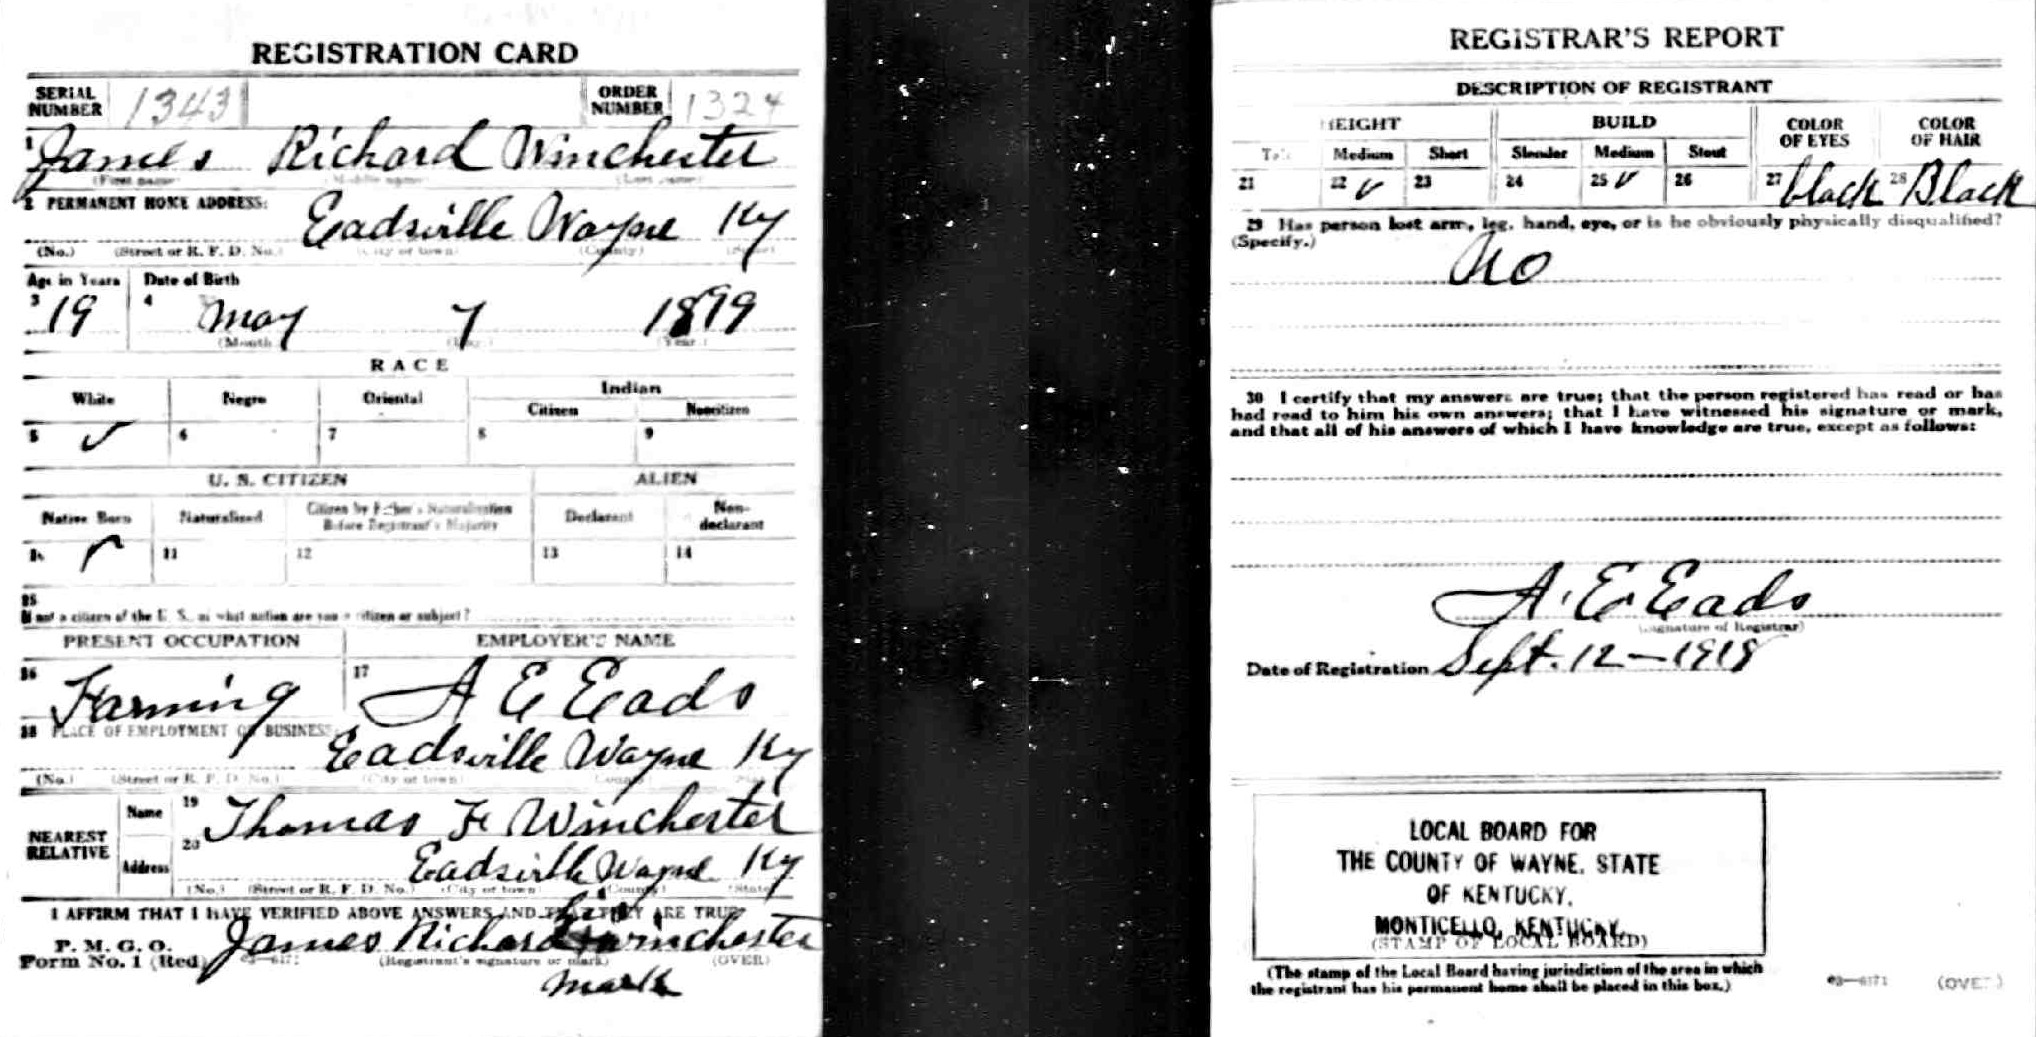 REGISTRATION CARD
SERIAL NUMBER 1343 ORDER NUMBER 1324
1 James Richard Winchester
(First name) (Middle name) (Last name)
2 PERMANENT HOME ADDRESS:
Eadsville Wayne Ky
(No.) (Street or R. F. D. No.) (City or town) (County) (State)
Age in Years Date of Birth
3 19 4 May 7 1899
(Month) (Day.) (Year.)
RACE
White Negro Oriental Indian
Citizen Noncitizen
5 ✓ 6 7 8 9
U. S. CITIZEN ALIEN
Native Born Naturalized Citizen by Father's Naturalization Before Registrant's Majority Declarant Non-declarant
10 ✓ 11 12 13 14
15
If not a citizen of the U. S., of what nation are you a citizen or subject?
PRESENT OCCUPATION EMPLOYER'S NAME
16 Farming 17 A E Eads
18 PLACE OF EMPLOYMENT OR BUSINESS:
Eadsville Wayne Ky
(No.) (Street or R. F. D. No.) (City or town) (County) (State)
NEAREST RELATIVE Name 19 Thomas F Winchester
Address 20 Eadsville Wayne Ky
(No.) (Street or R. F. D. No.) (City or town) (County) (State)
I AFFIRM THAT I HAVE VERIFIED ABOVE ANSWERS AND THAT THEY ARE TRUE
his
P. M. G. O.
Form No. 1 (Red) James Richard x Winchester
03—6171 (Registrant's signature or mark) (OVER)
mark
REGISTRAR'S REPORT
DESCRIPTION OF REGISTRANT
HEIGHT BUILD COLOR OF EYES COLOR OF HAIR
Tall Medium Short Slender Medium Stout
21 22 ✓ 23 24 25 ✓ 26 27 black 28 Black
29 Has person lost arm, leg, hand, eye, or is he obviously physically disqualified?
(Specify.)
No
30 I certify that my answers are true; that the person registered has read or has
had read to him his own answers; that I have witnessed his signature or mark,
and that all of his answers of which I have knowledge are true, except as follows:
A. E. Eads
(Signature of Registrar)
Date of Registration Sept. 12—1918
LOCAL BOARD FOR
THE COUNTY OF WAYNE, STATE
OF KENTUCKY,
MONTICELLO, KENTUCKY.
(STAMP OF LOCAL BOARD)
(The stamp of the Local Board having jurisdiction of the area in which
the registrant has his permanent home shall be placed in this box.)
03—6171 (OVER)